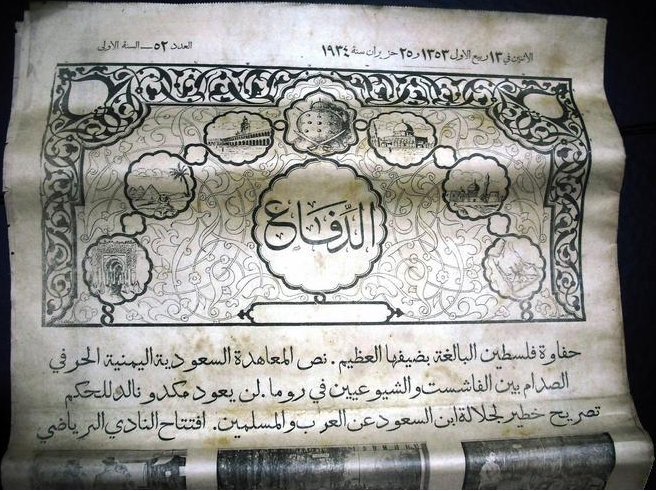 الاثنين في ١٣ ربيع الاول ١٣٥٣ و ٢٥ حزيران سنة ١٩٣٤
العدد ٥٢ — السنة الاولى
الدِّفَاع
حفاوة فلسطين البالغة بضيفها العظيم. نص المعاهدة السعودية اليمنية الحرفي
الصدام بين الفاشست والشيوعيين في روما. لن يعود مكدونالد للحكم
تصريح خطير لجلالة ابن السعود عن العرب والمسلمين. افتتاح النادي الرياضي